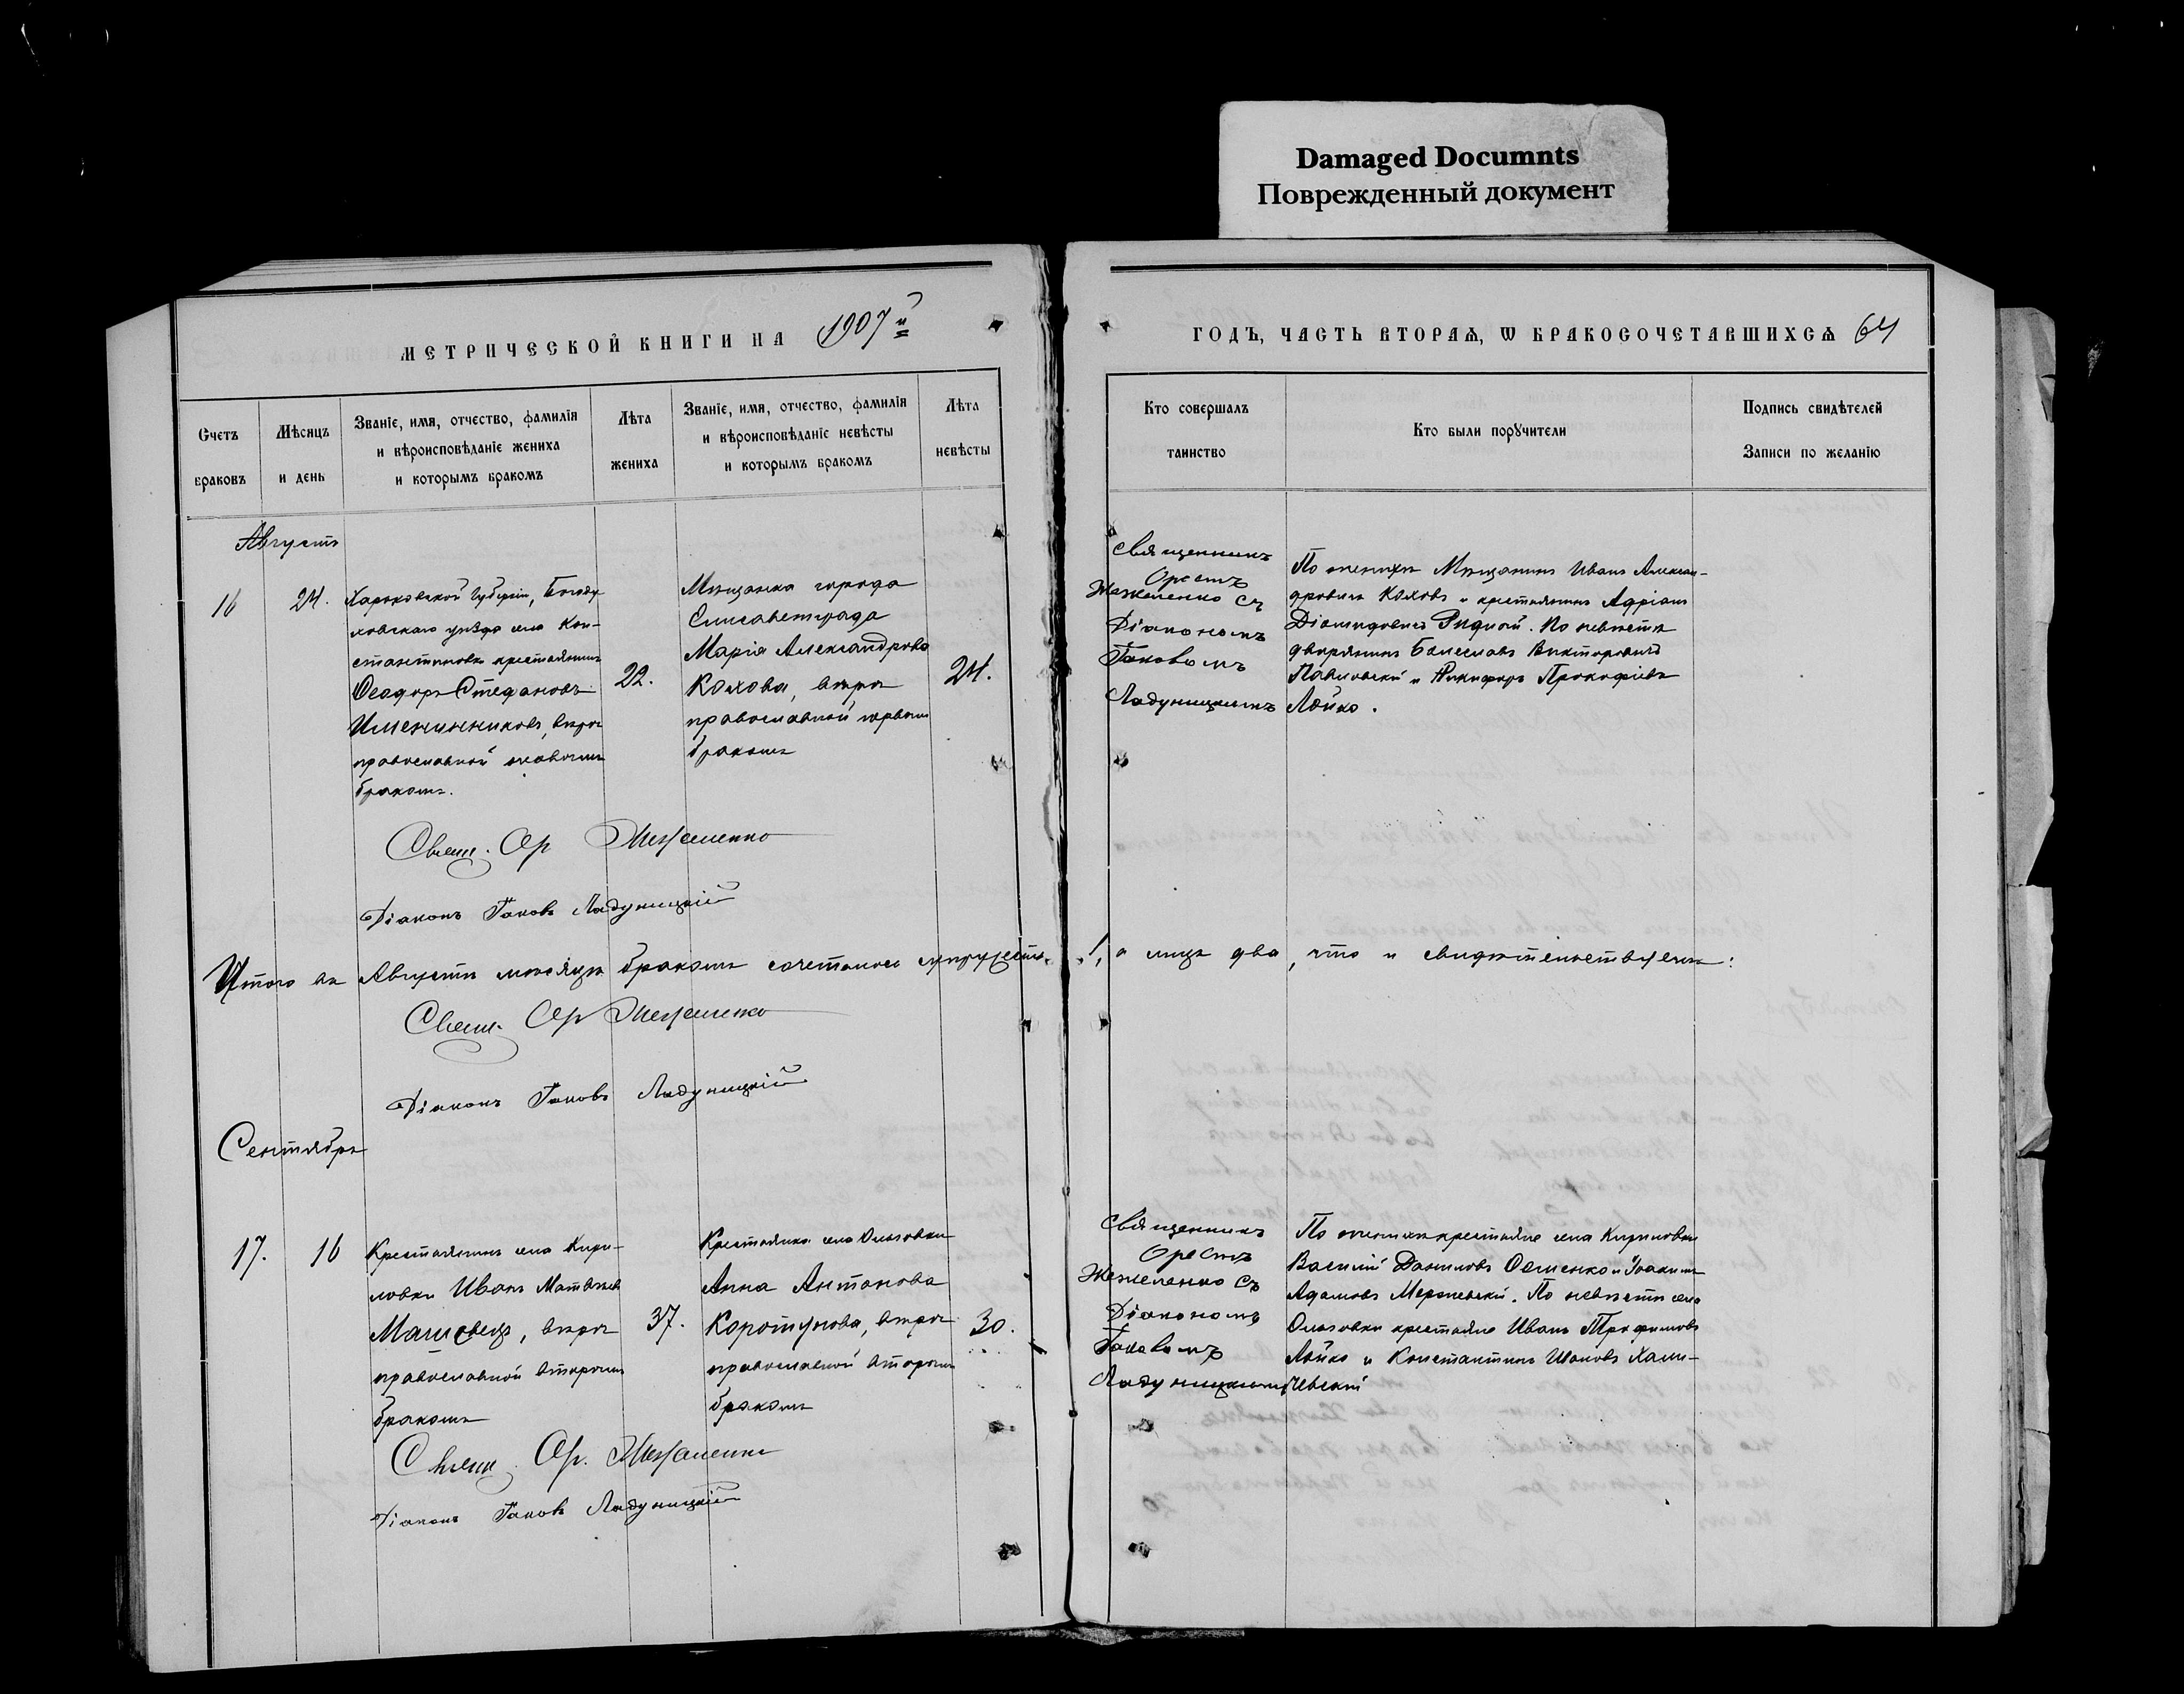 Damaged Documnts
Поврежденный документ
МЕТРИЧЕСКОЙ КНИГИ НА 1907й
ГОДЪ, ЧАСТЬ ВТОРАѦ, Ѡ БРАКОСОЧЕТАВШИХСѦ 64
Счетъ
браковъ
Мѣсяцъ
и день
Званіе, имя, отчество, фамилія
и вѣроисповѣданіе жениха
и которымъ бракомъ
Лѣта
жениха
Званіе, имя, отчество, фамилія
и вѣроисповѣданіе невѣсты
и которымъ бракомъ
Лѣта
невѣсты
Кто совершалъ
таинство
Кто были порꙋчители
Подпись свидѣтелей
Записи по желанію
Августъ
16
24.
Харьковской губерніи, Богоду-
ховскаго уѣзда села Кон-
стантиновки крестьянинъ
Ѳеодоръ Стефановъ
Именинниковъ, вѣры
православной первымъ
бракомъ.
22.
Мѣщанка города
Елисаветграда
Марія Александрова
Колхова, вѣры
православной первымъ
бракомъ
24.
Священникъ
Орестъ
Желеленко съ
Діакономъ
Іаковомъ
Ладуницкимъ
По женихѣ Мѣщанинъ Иванъ Алексан-
дровичъ и крестьянинъ Адріанъ
Діомидовичъ Ридной. По невѣстѣ
дворянинъ Болеславъ Викторовичъ
Павловскій и Никифоръ Прокофіевъ
Лойко.
Свящ. Ор
Діаконъ Іаковъ Ладуницкій
Итого въ Августѣ мѣсяцѣ бракомъ сочеталось супружествъ 1, а лицъ два, что и свидѣтельствуемъ:
Свящ. Ор
Діаконъ Іаковъ Ладуницкій
Сентябрь
17.
16
Крестьянинъ села Кири-
ловки Иванъ Матвѣевъ
вѣры
православной вторымъ
бракомъ
37.
Крестьянка села Ольговки
Анна Антонова
Коротунова, вѣры
православной вторымъ
бракомъ
30.
Священникъ
Орестъ
съ
Діакономъ
Іаковомъ
Ладуницкимъ
По женихѣ крестьяне села Кириловки
Василій Даниловъ и Іоакимъ
Адамовъ. По невѣстѣ села
Ольговки крестьяне Иванъ Трофимовъ
Лойко и Константинъ
Свящ. Ор.
Діаконъ Іаковъ Ладуницкій